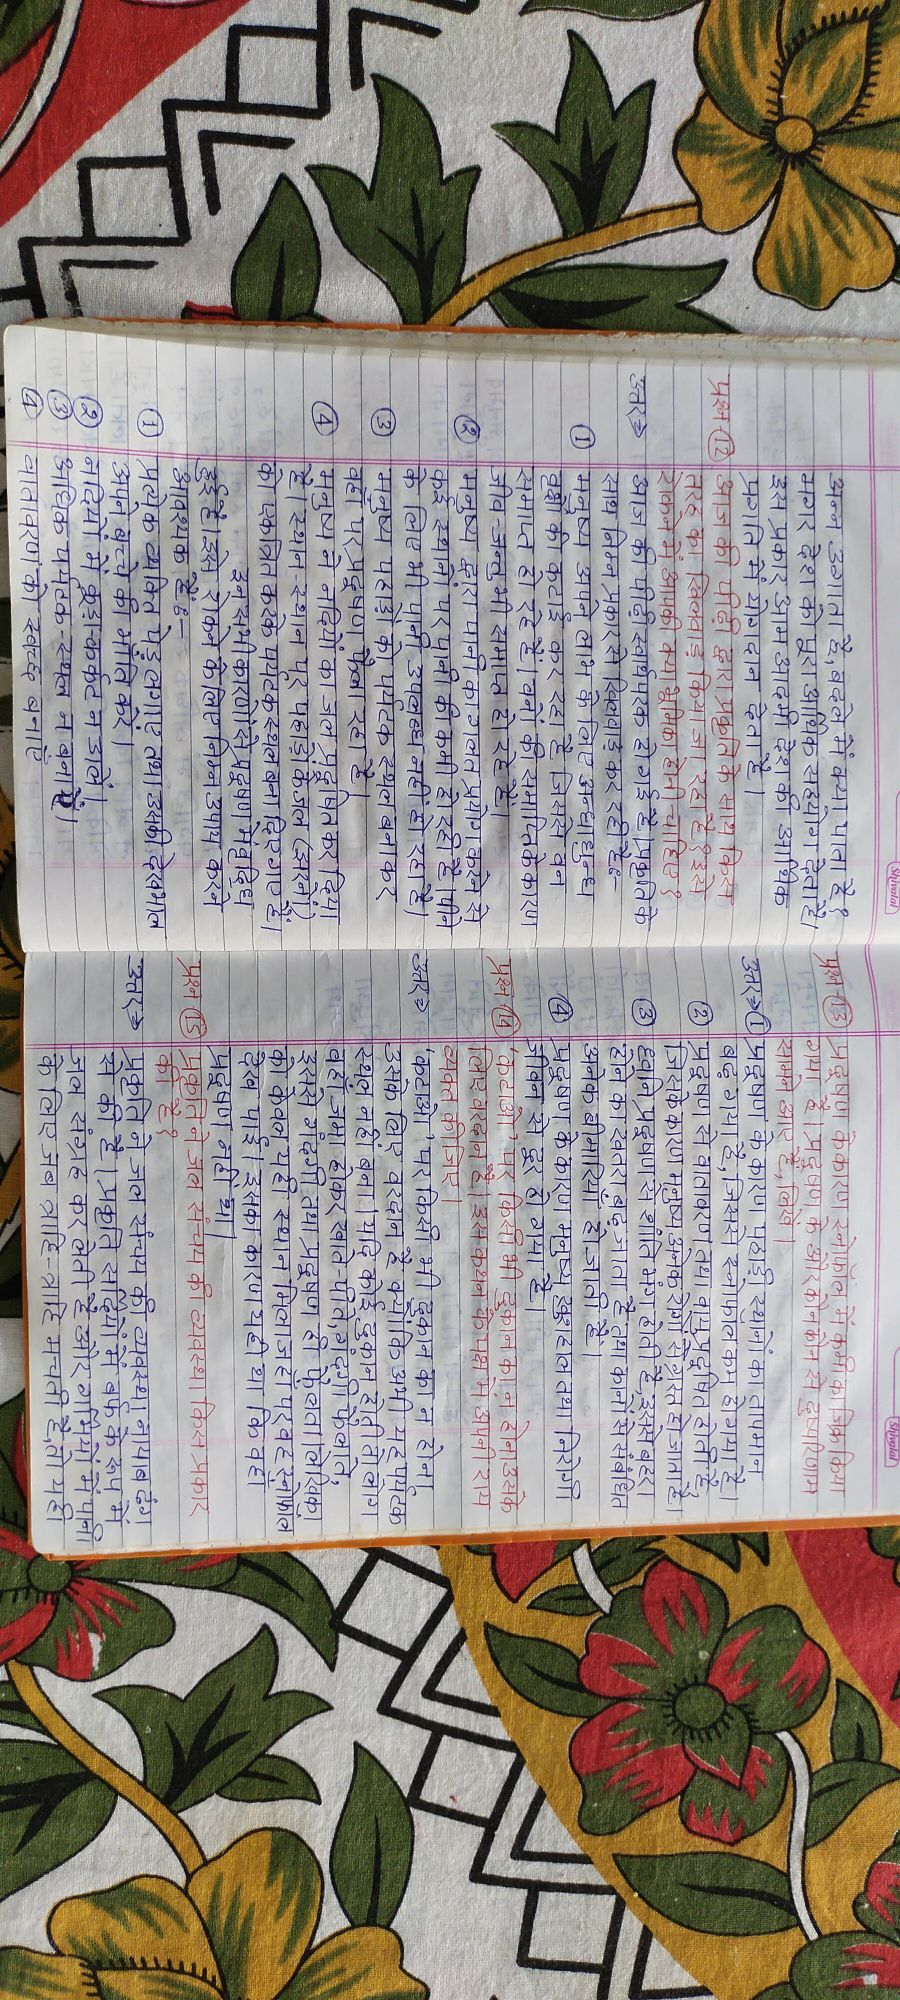 अन्न उगाता है, बदले में क्या पाता है?
मगर देश को पूरा आर्थिक सहयोग देता है।
इस प्रकार आम आदमी देश की आर्थिक
प्रगति में योगदान देता है।
प्रश्न 12 आज की पीढ़ी द्वारा प्रकृति के साथ किस
तरह का खिलवाड़ किया जा रहा है? इसे
रोकने में आपकी क्या भूमिका होनी चाहिए?
उत्तर→ आज की पीढ़ी स्वार्थपरक हो गई है। प्रकृति के
साथ निम्न प्रकार से खिलवाड़ कर रही है:-
① मनुष्य अपने लाभ के लिए अन्धाधुन्ध
वृक्षों की कटाई कर रहा है जिससे वन
समाप्त हो रहे हैं। वनों की समाप्ति के कारण
जीव-जन्तु भी समाप्त हो रहे हैं।
② मनुष्य द्वारा पानी का गलत प्रयोग करने से
कई स्थानों पर पानी की कमी हो रही है। पीने
के लिए भी पानी उपलब्ध नहीं हो रहा है।
③ मनुष्य पहाड़ों को पर्यटक स्थल बनाकर
वहाँ पर प्रदूषण फैला रहा है।
④ मनुष्य ने नदियों का जल प्रदूषित कर दिया
है। स्थान-स्थान पर पहाड़ों के जल (झरनों)
को एकत्रित करके पर्यटक स्थल बना दिए गए हैं।
इन सभी कारणों से प्रदूषण में वृद्धि
हुई है। इसे रोकने के लिए निम्न उपाय करने
आवश्यक हैं:-
① प्रत्येक व्यक्ति पेड़ लगाएं तथा उसकी देखभाल
अपने बच्चे की भाँति करे।
② नदियों में कूड़ा-कर्कट न डालें।
③ अधिक पर्यटक-स्थल न बनाएँ।
④ वातावरण को स्वच्छ बनाएं
प्रश्न 13 प्रदूषण के कारण स्नोफॉल में कमी का जिक्र किया
गया है। प्रदूषण के और कौन-कौन से दुष्परिणाम
सामने आए हैं, लिखें।
उत्तर→ ① प्रदूषण के कारण पहाड़ी स्थानों का तापमान
बढ़ गया है, जिससे स्नोफॉल कम हो गया है।
② प्रदूषण से वातावरण तथा वायु प्रदूषित होती है
जिसके कारण मनुष्य अनेक रोगों से ग्रस्त हो जाता है।
③ ध्वनि प्रदूषण से शांति भंग होती है, इससे बहरा
होने का खतरा बढ़ जाता है तथा कानों से संबंधित
अनेक बीमारियाँ हो जाती हैं।
④ प्रदूषण के कारण मनुष्य खुशहाल तथा निरोगी
जीवन से दूर हो गया है।
प्रश्न 14 'कटाओ' पर किसी भी दुकान का न होना उसके
लिए वरदान है। इस कथन के पक्ष में अपनी राय
व्यक्त कीजिए।
उत्तर→ 'कटाओ' पर किसी भी दुकान का न होना,
उसके लिए वरदान है क्योंकि अभी यह पर्यटक
स्थल नहीं बना। यदि कोई दुकान होती तो लोग
वहाँ जमा होकर खाते-पीते, गंदगी फैलाते,
इससे गंदगी तथा प्रदूषण ही फैलता। लेखिका
को केवल यही स्थान मिला जहाँ पर वह स्नोफॉल
देख पाई। इसका कारण यही था कि वहाँ
प्रदूषण नहीं था।
प्रश्न 15 प्रकृति ने जल संचय की व्यवस्था किस प्रकार
की है?
उत्तर→ प्रकृति ने जल संचय की व्यवस्था नायाब ढंग
से की है। प्रकृति सर्दियों में बर्फ के रूप में
जल संग्रह कर लेती है और गर्मियों में पानी
के लिए जब त्राहि-त्राहि मचती है, तो यही
Shivalal
Shivalal